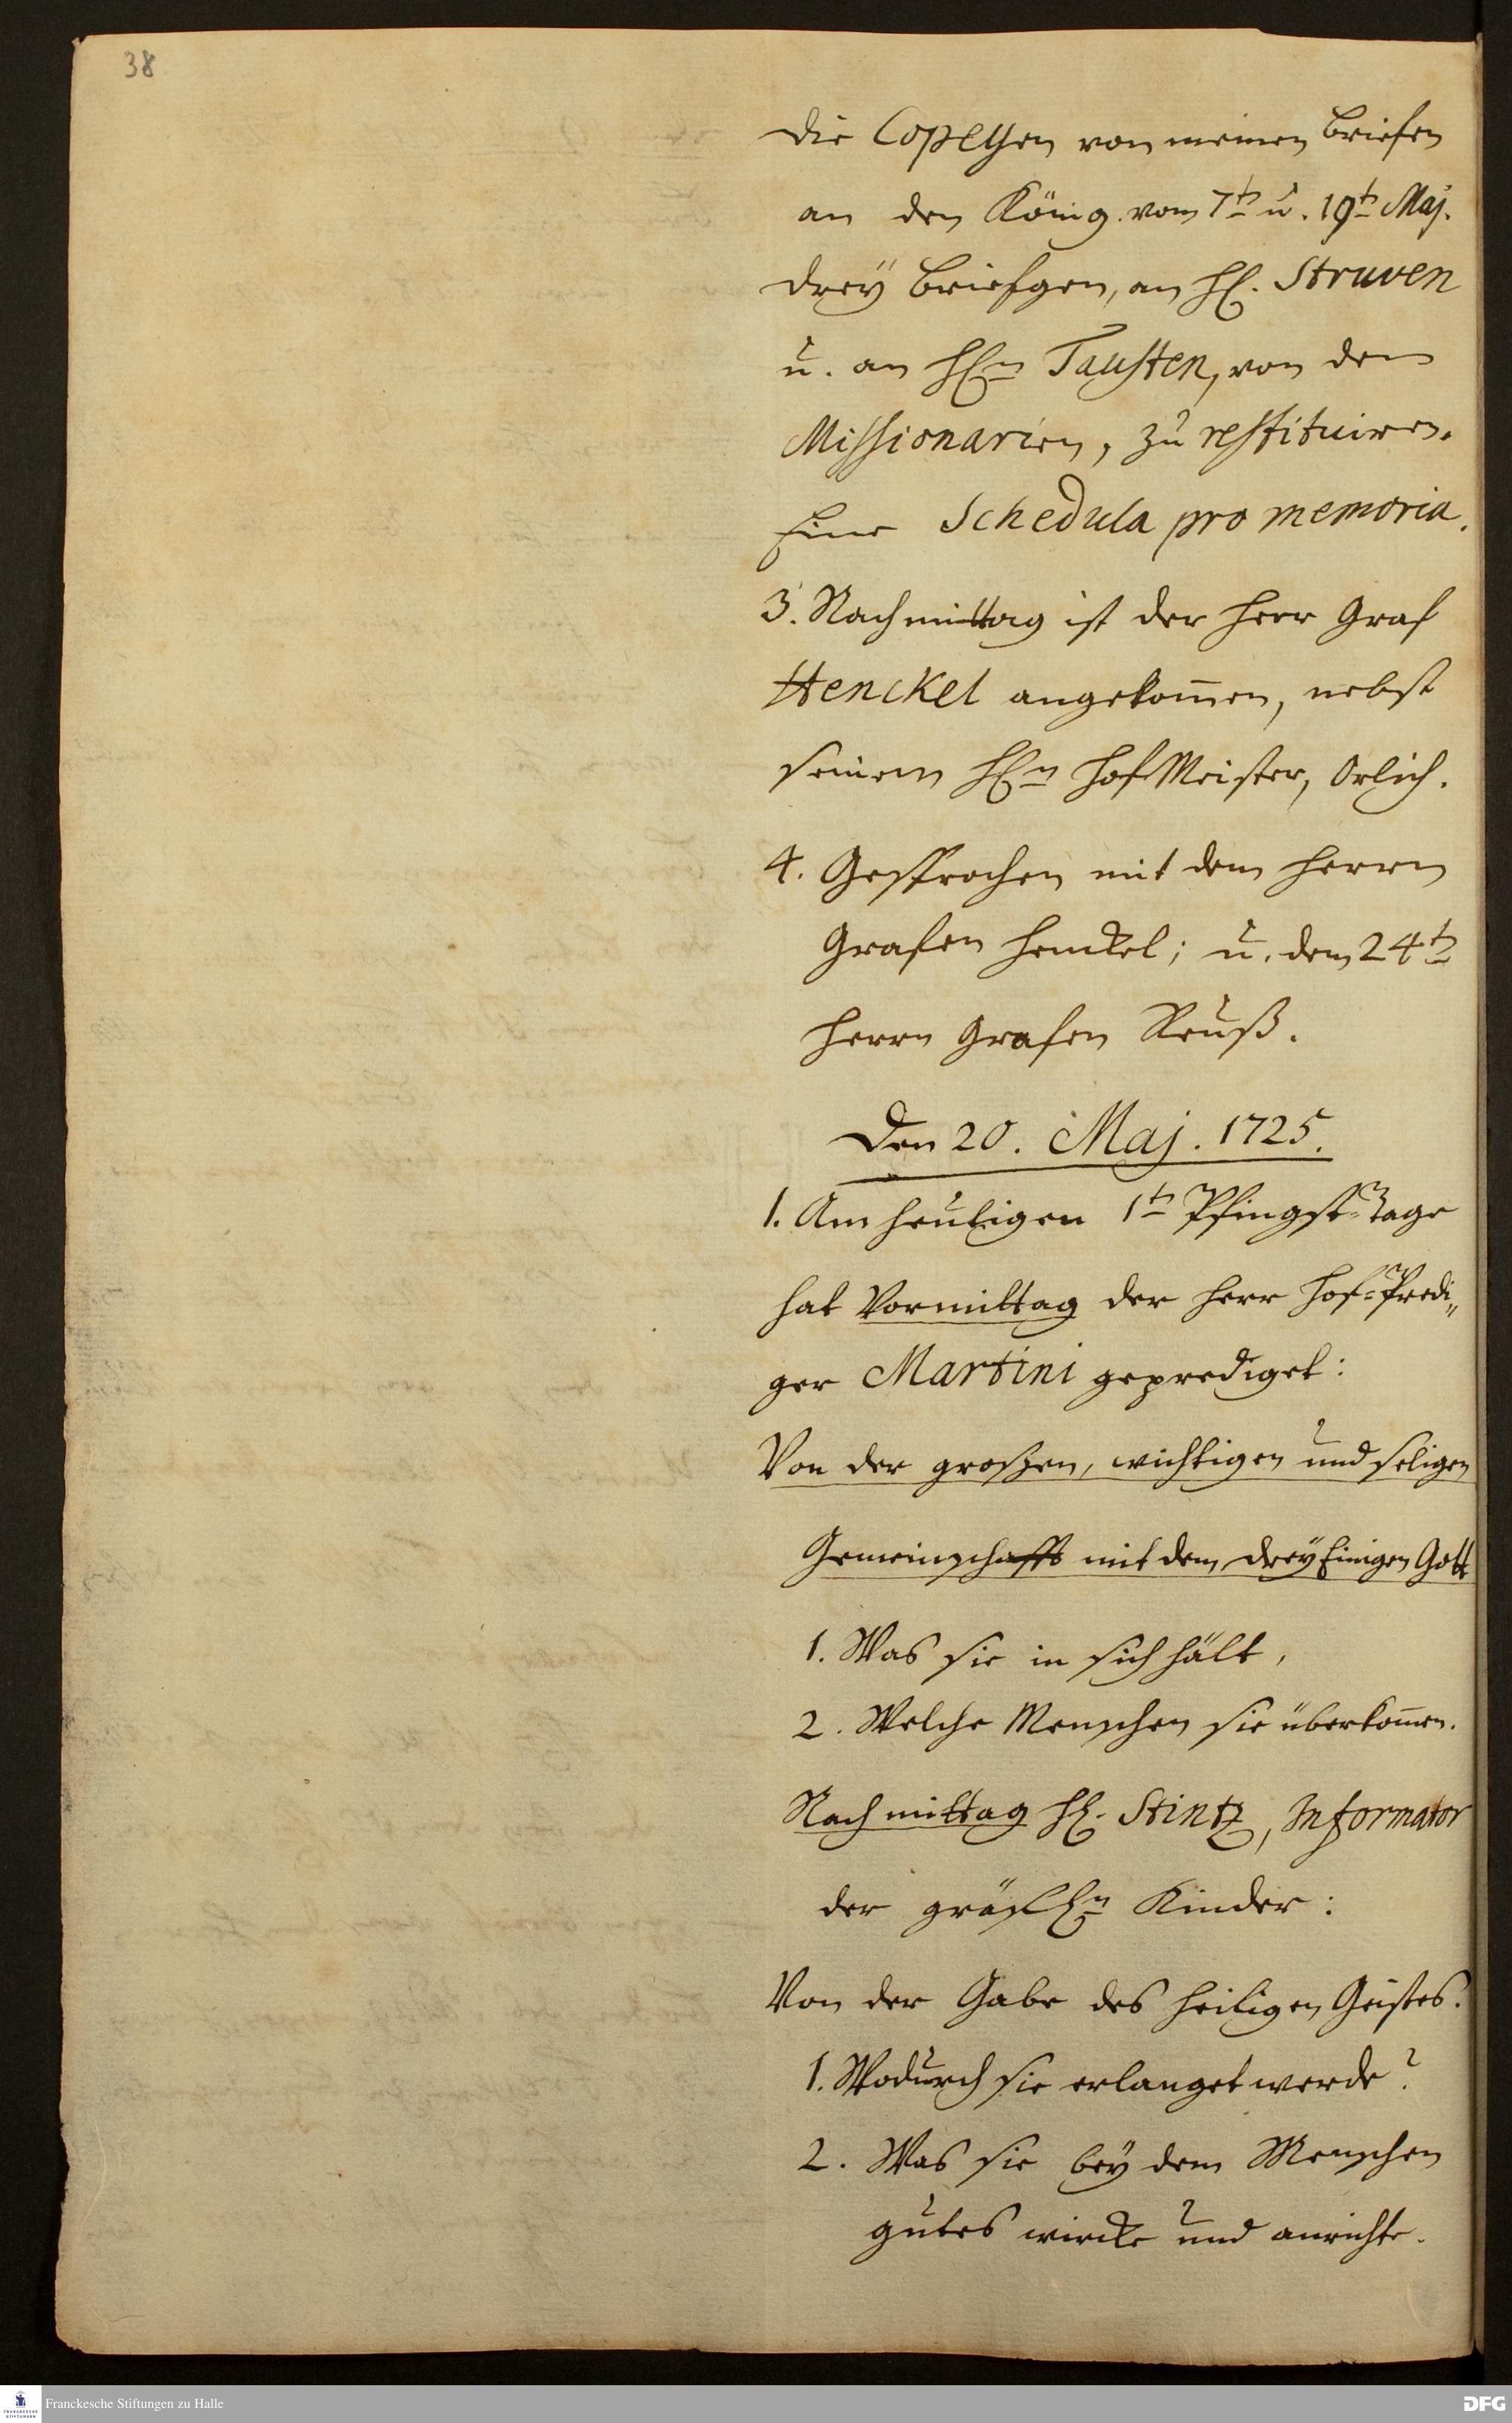 38
die Copeyen von meinen briefen
an den König vom 7t. u. 19t. Maj.
drey briefgen, an H. Struven
u. an HEn Tausten, von den
Missionarien, zu restituiren.
Eine Schedula pro memoria.
3. Nachmittag ist der Herr Graf
Henckel angekom̄en, nebst
seinem HEn HofMeister, Orlich.
4. Gesprochen mit dem Herrn
Grafen Henckel; u. dem 24t.
Herrn Grafen Reuß.
Den 20. Maj. 1725.
1. Am heutigen 1t. Pfingst-Tage
hat Vormittag der Herr Hof-Predi„
ger Martini geprediget:
Von der großen, wichtigen und seligen
Gemeinschafft mit dem dreyEinigen Gott
1. Was sie in sich hält,
2. Welche Menschen sie überkom̄en.
Nachmittag H. Stintz, Informator
der gräflEn Kinder:
Von der Gabe des heiligen Geistes.
1. Wodurch sie erlanget werde?
2. Was sie bey dem Menschen
gutes wircke und anrichte.
FRANCKESCHE STIFTUNGEN
Franckesche Stiftungen zu Halle
DFG